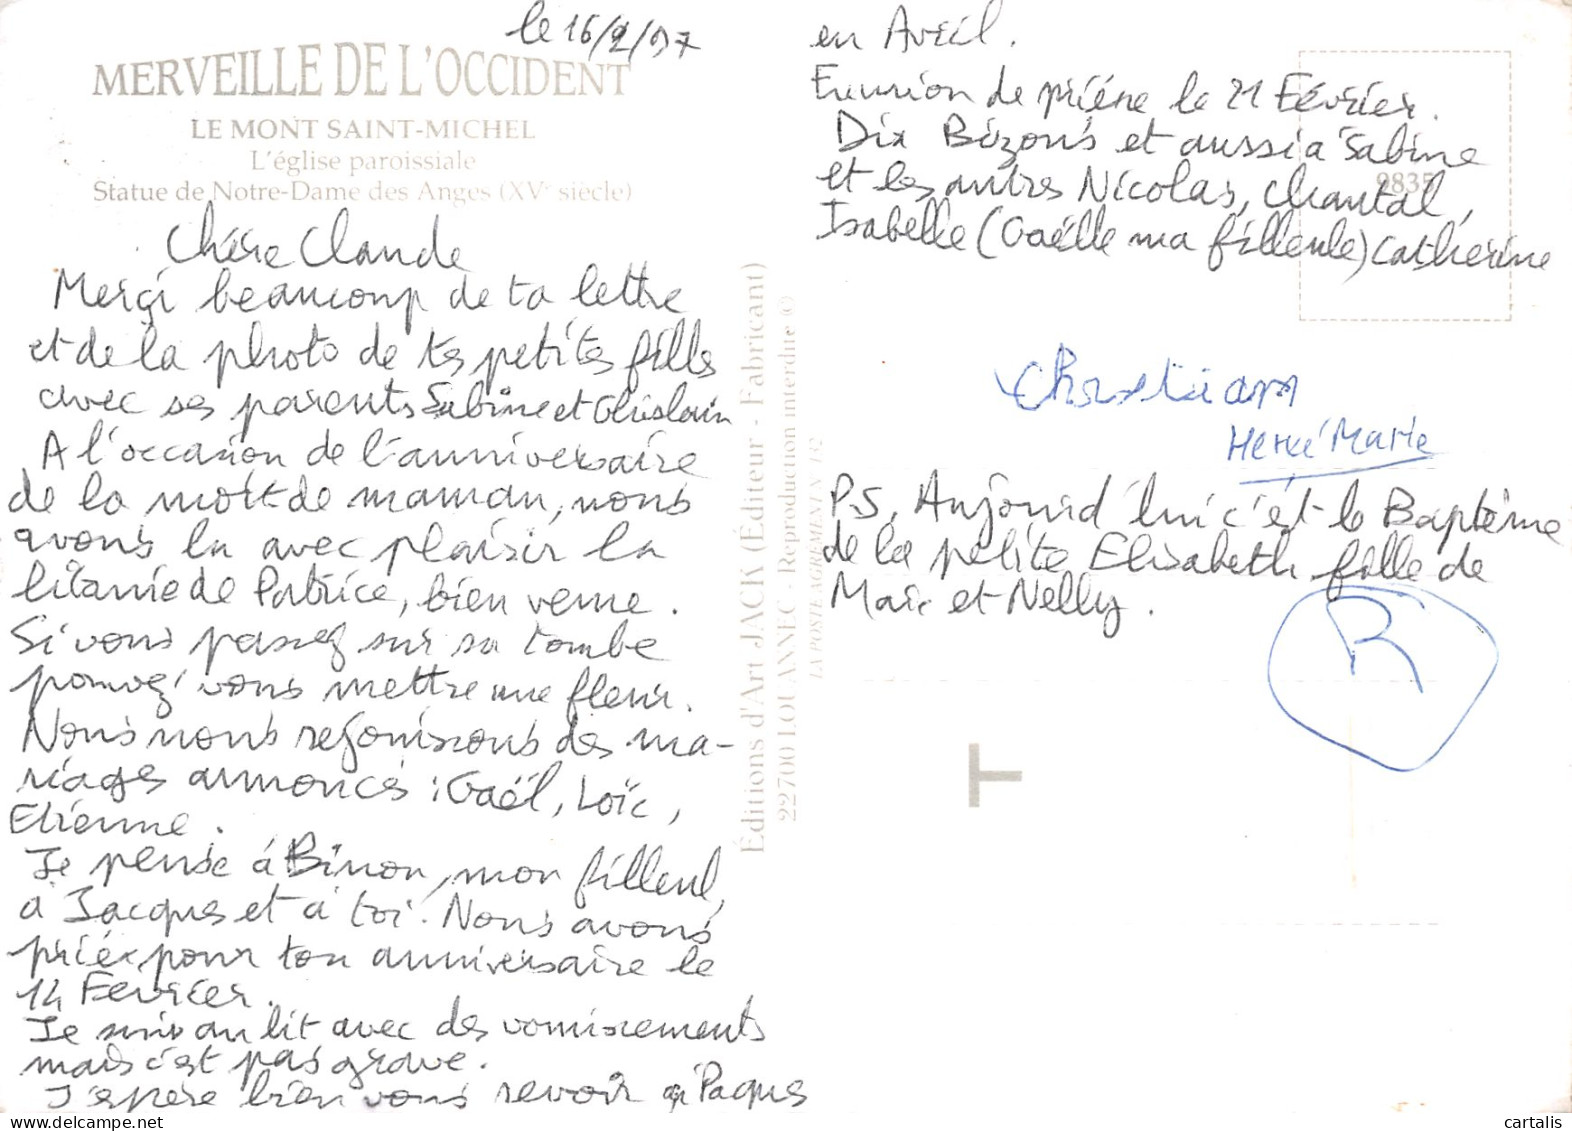 le 16/2/97
MERVEILLE DE L'OCCIDENT
LE MONT SAINT-MICHEL
L'église paroissiale
Statue de Notre-Dame des Anges (XVe siècle)
Chère Claude
Merçi beaucoup de ta lettre
et de la photo de tes petites filles
avec ses parents Sabine et Ghislain
A l'occasion de l'anniversaire
de la mort de maman, nous
avons lu avec plaisir la
litanie de Patrice, bien venue.
Si vous passez sur sa tombe
pouvez vous mettre une fleur.
Nous nous rejouissons des ma-
riages annoncés : Gaël, Loïc,
Etienne.
Je pense à Binon, mon filleul,
à Jacques et à toi. Nous avons
prier pour ton anniversaire le
14 Fevrier.
Je suis au lit avec des vomissements
mais c'est pas grave.
J'espère bien vous revoir à Paques
en Avril.
Reunion de prière le 21 Février.
Dix Bizous et aussi a Sabine
et les autres Nicolas, Chantal,
Isabelle (Gaëlle ma filleule) Catherine
9835
Christian
Hervé Marie
P.S. Aujourd'hui c'est le Baptème
de la petite Elisabeth fille de
Marc et Nelly.
R
T
Éditions d'Art JACK (Éditeur - Fabricant)
22700 LOUANNEC - Reproduction interdite ©
LA POSTE AGREMENT N°
cartalis